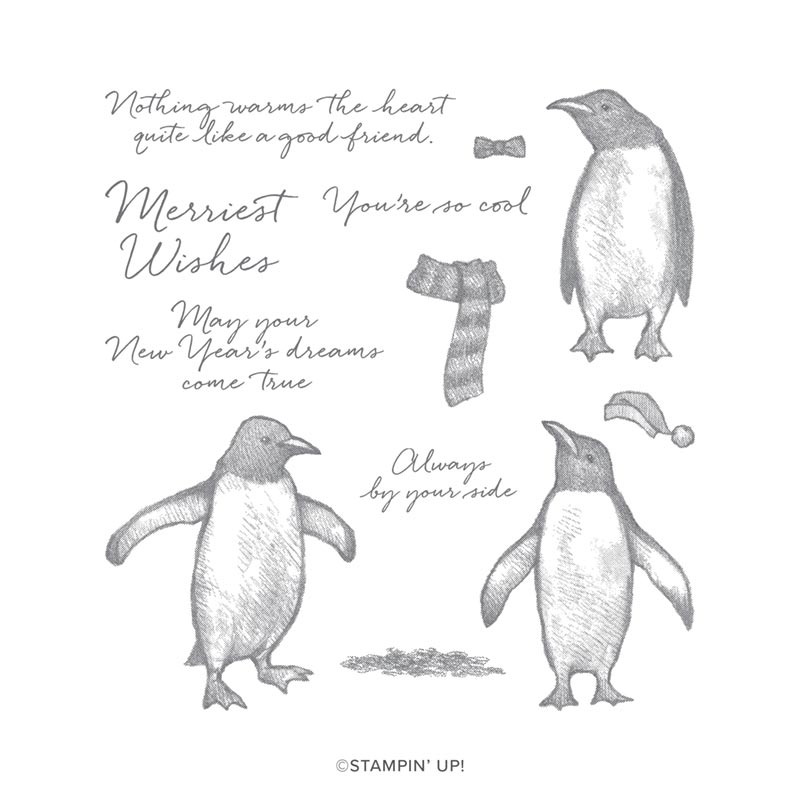 Nothing warms the heart
quite like a good friend.
Merriest
Wishes
You're so cool
May your
New Year's dreams
come true
Always
by your side
©STAMPIN' UP!